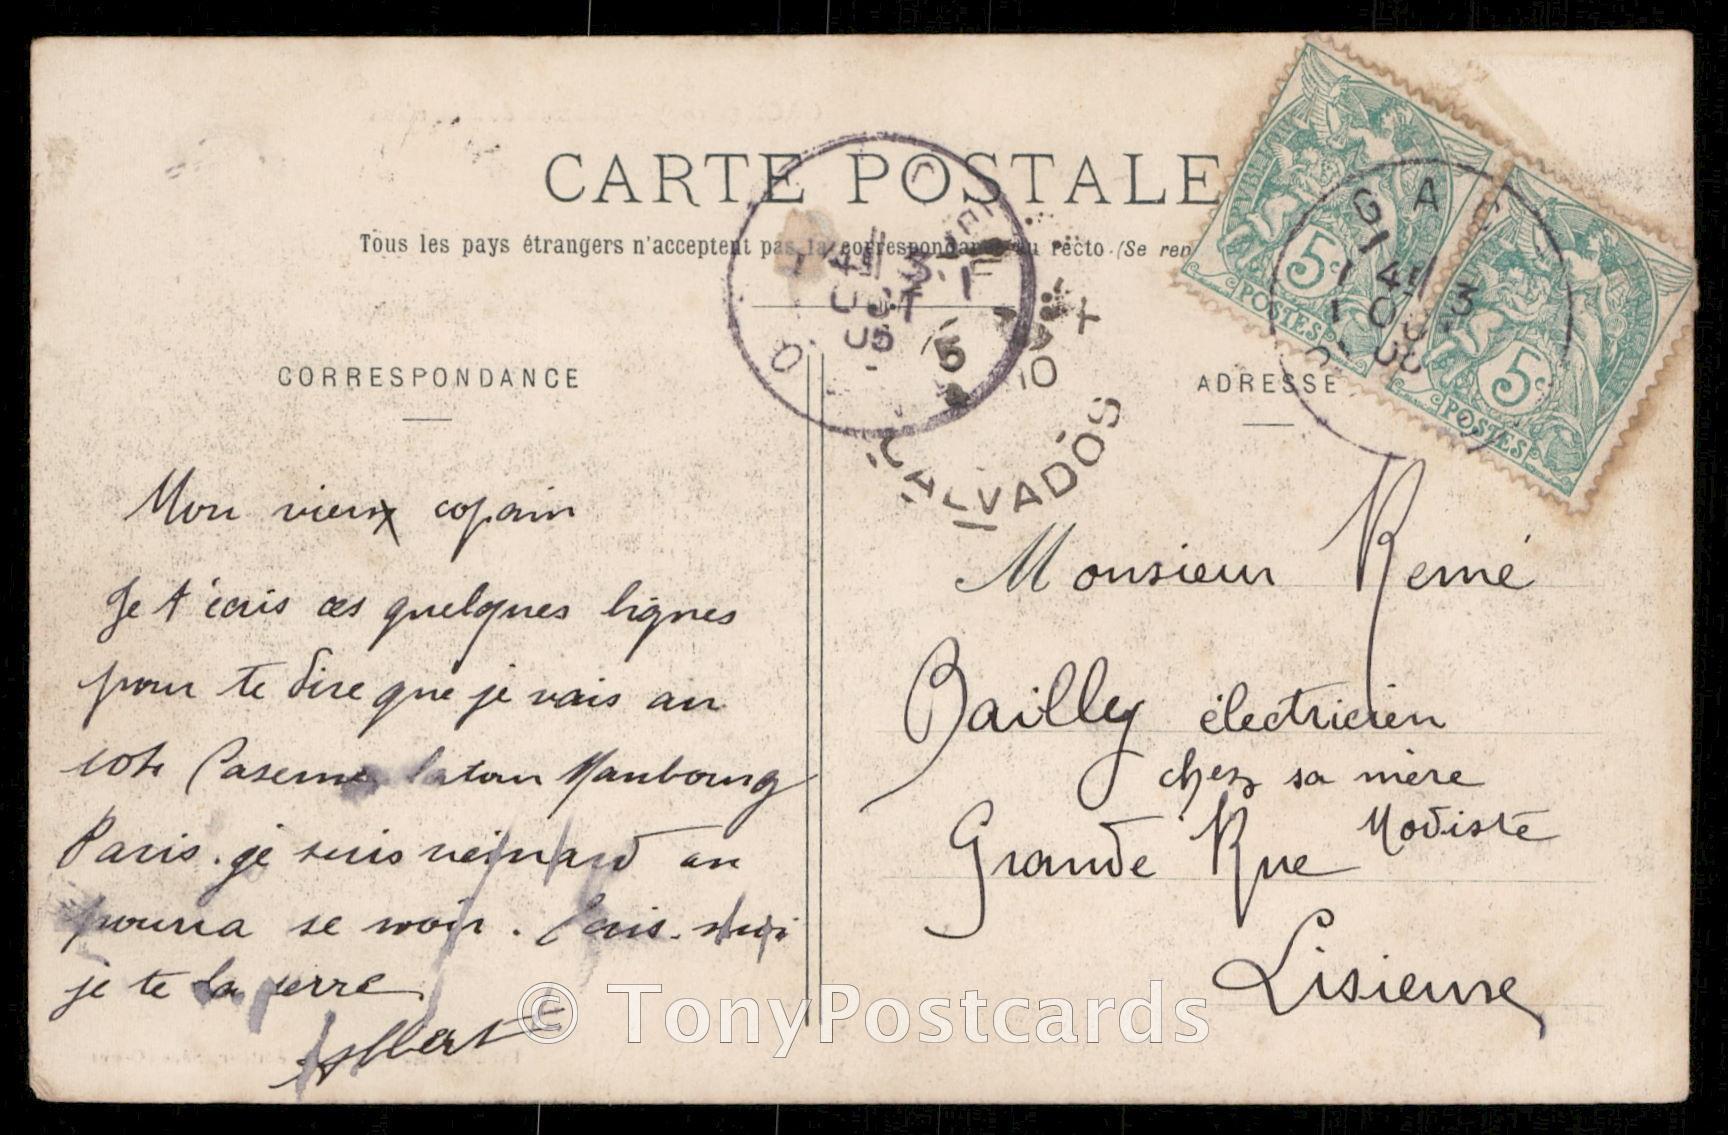 CARTE POSTALE
Tous les pays étrangers n'acceptent pas la correspondance au recto (Se ren
CORRESPONDANCE
ADRESSE
GAC
14 3
OCT
05
CALVADOS
5
10
5c
POSTES
5c
POSTES
Mon vieux copain
Je t'écris ces quelques lignes
pour te dire que je vais au
Caserne Latour Maubourg
Paris. je suis veinard on
pourra se voir. Écris. moi
je te la serre
Albert
Monsieur René
Bailly électricien
chez sa mère
Modiste
Grande Rue
Lisieux
© TonyPostcards